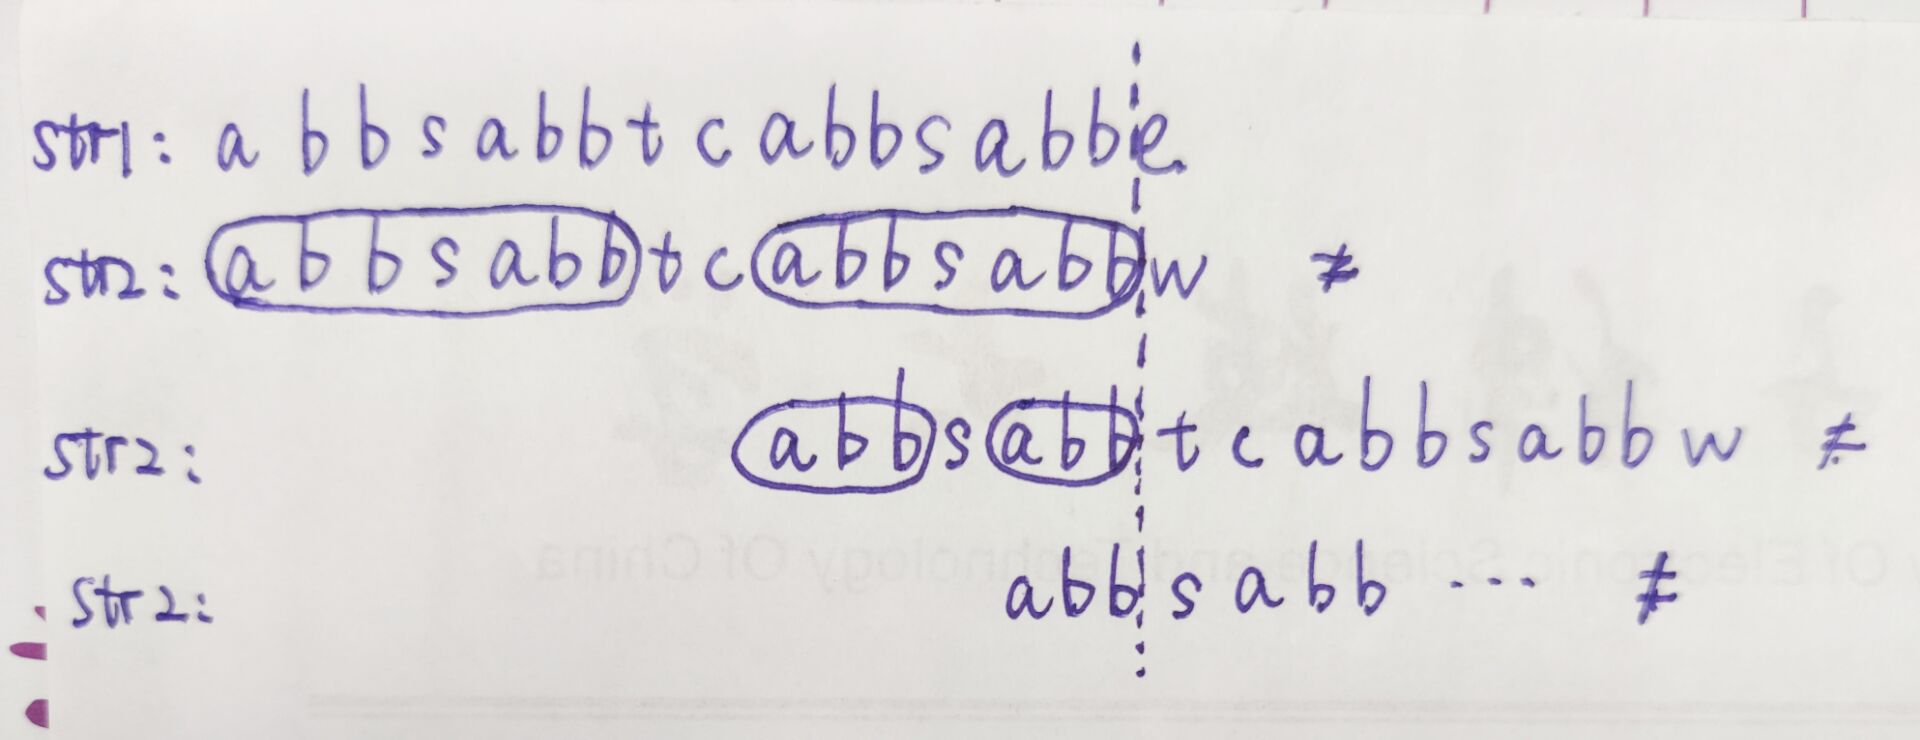 str1: a b b s a b b t c a b b s a b b e
str2: a b b s a b b t c a b b s a b b w ≠
str2: a b b s a b b t c a b b s a b b w ≠
Of Electronic Science and Technology Of China
str2: a b b s a b b ... ≠